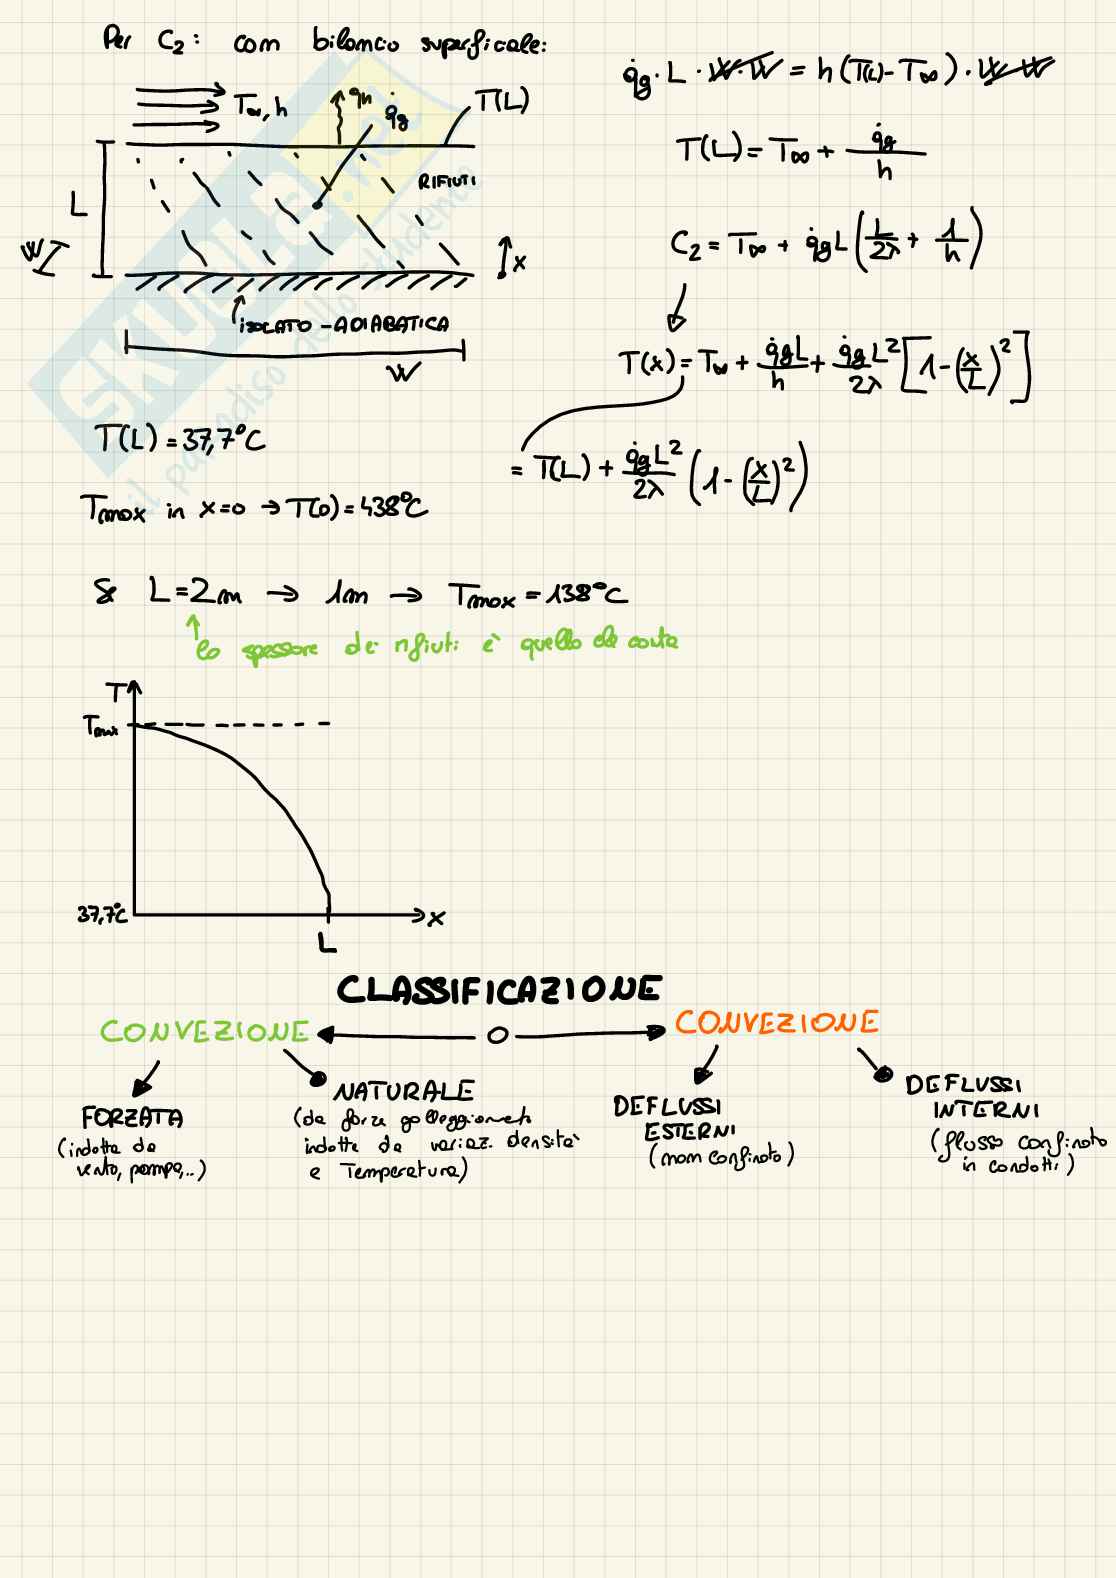 Per C₂: con bilancio superficale:
T∞, h
qh
q̇g
T(L)
RIFIUTI
L
W
x
ISOLATO - ADIABATICA
W
q̇g · L · W · W = h (T(L) - T∞) · W W
T(L) = T∞ + q̇g / h
C₂ = T∞ + q̇g L (L/2λ + 1/h)
T(x) = T∞ + q̇g L/h + q̇g L²/2λ [1 - (x/L)²]
= T(L) + q̇g L²/2λ (1 - (x/L)²)
T(L) = 37,7°C
Tmax in x=0 → T(0) = 438°C
Se L = 2m → 1m → Tmax = 138°C
lo spessore dei rifiuti è quello che conta
T
Tmax
37,7°C
L
x
CLASSIFICAZIONE
CONVEZIONE
CONVEZIONE
FORZATA
(indotta da
vento, pompe,...)
NATURALE
(da forze galleggiamento
indotte da variaz. densità
e Temperatura)
DEFLUSSI
ESTERNI
(non confinato)
DEFLUSSI
INTERNI
(flusso confinato
in condotti)
SKUOLA.net
il paradiso dello studente